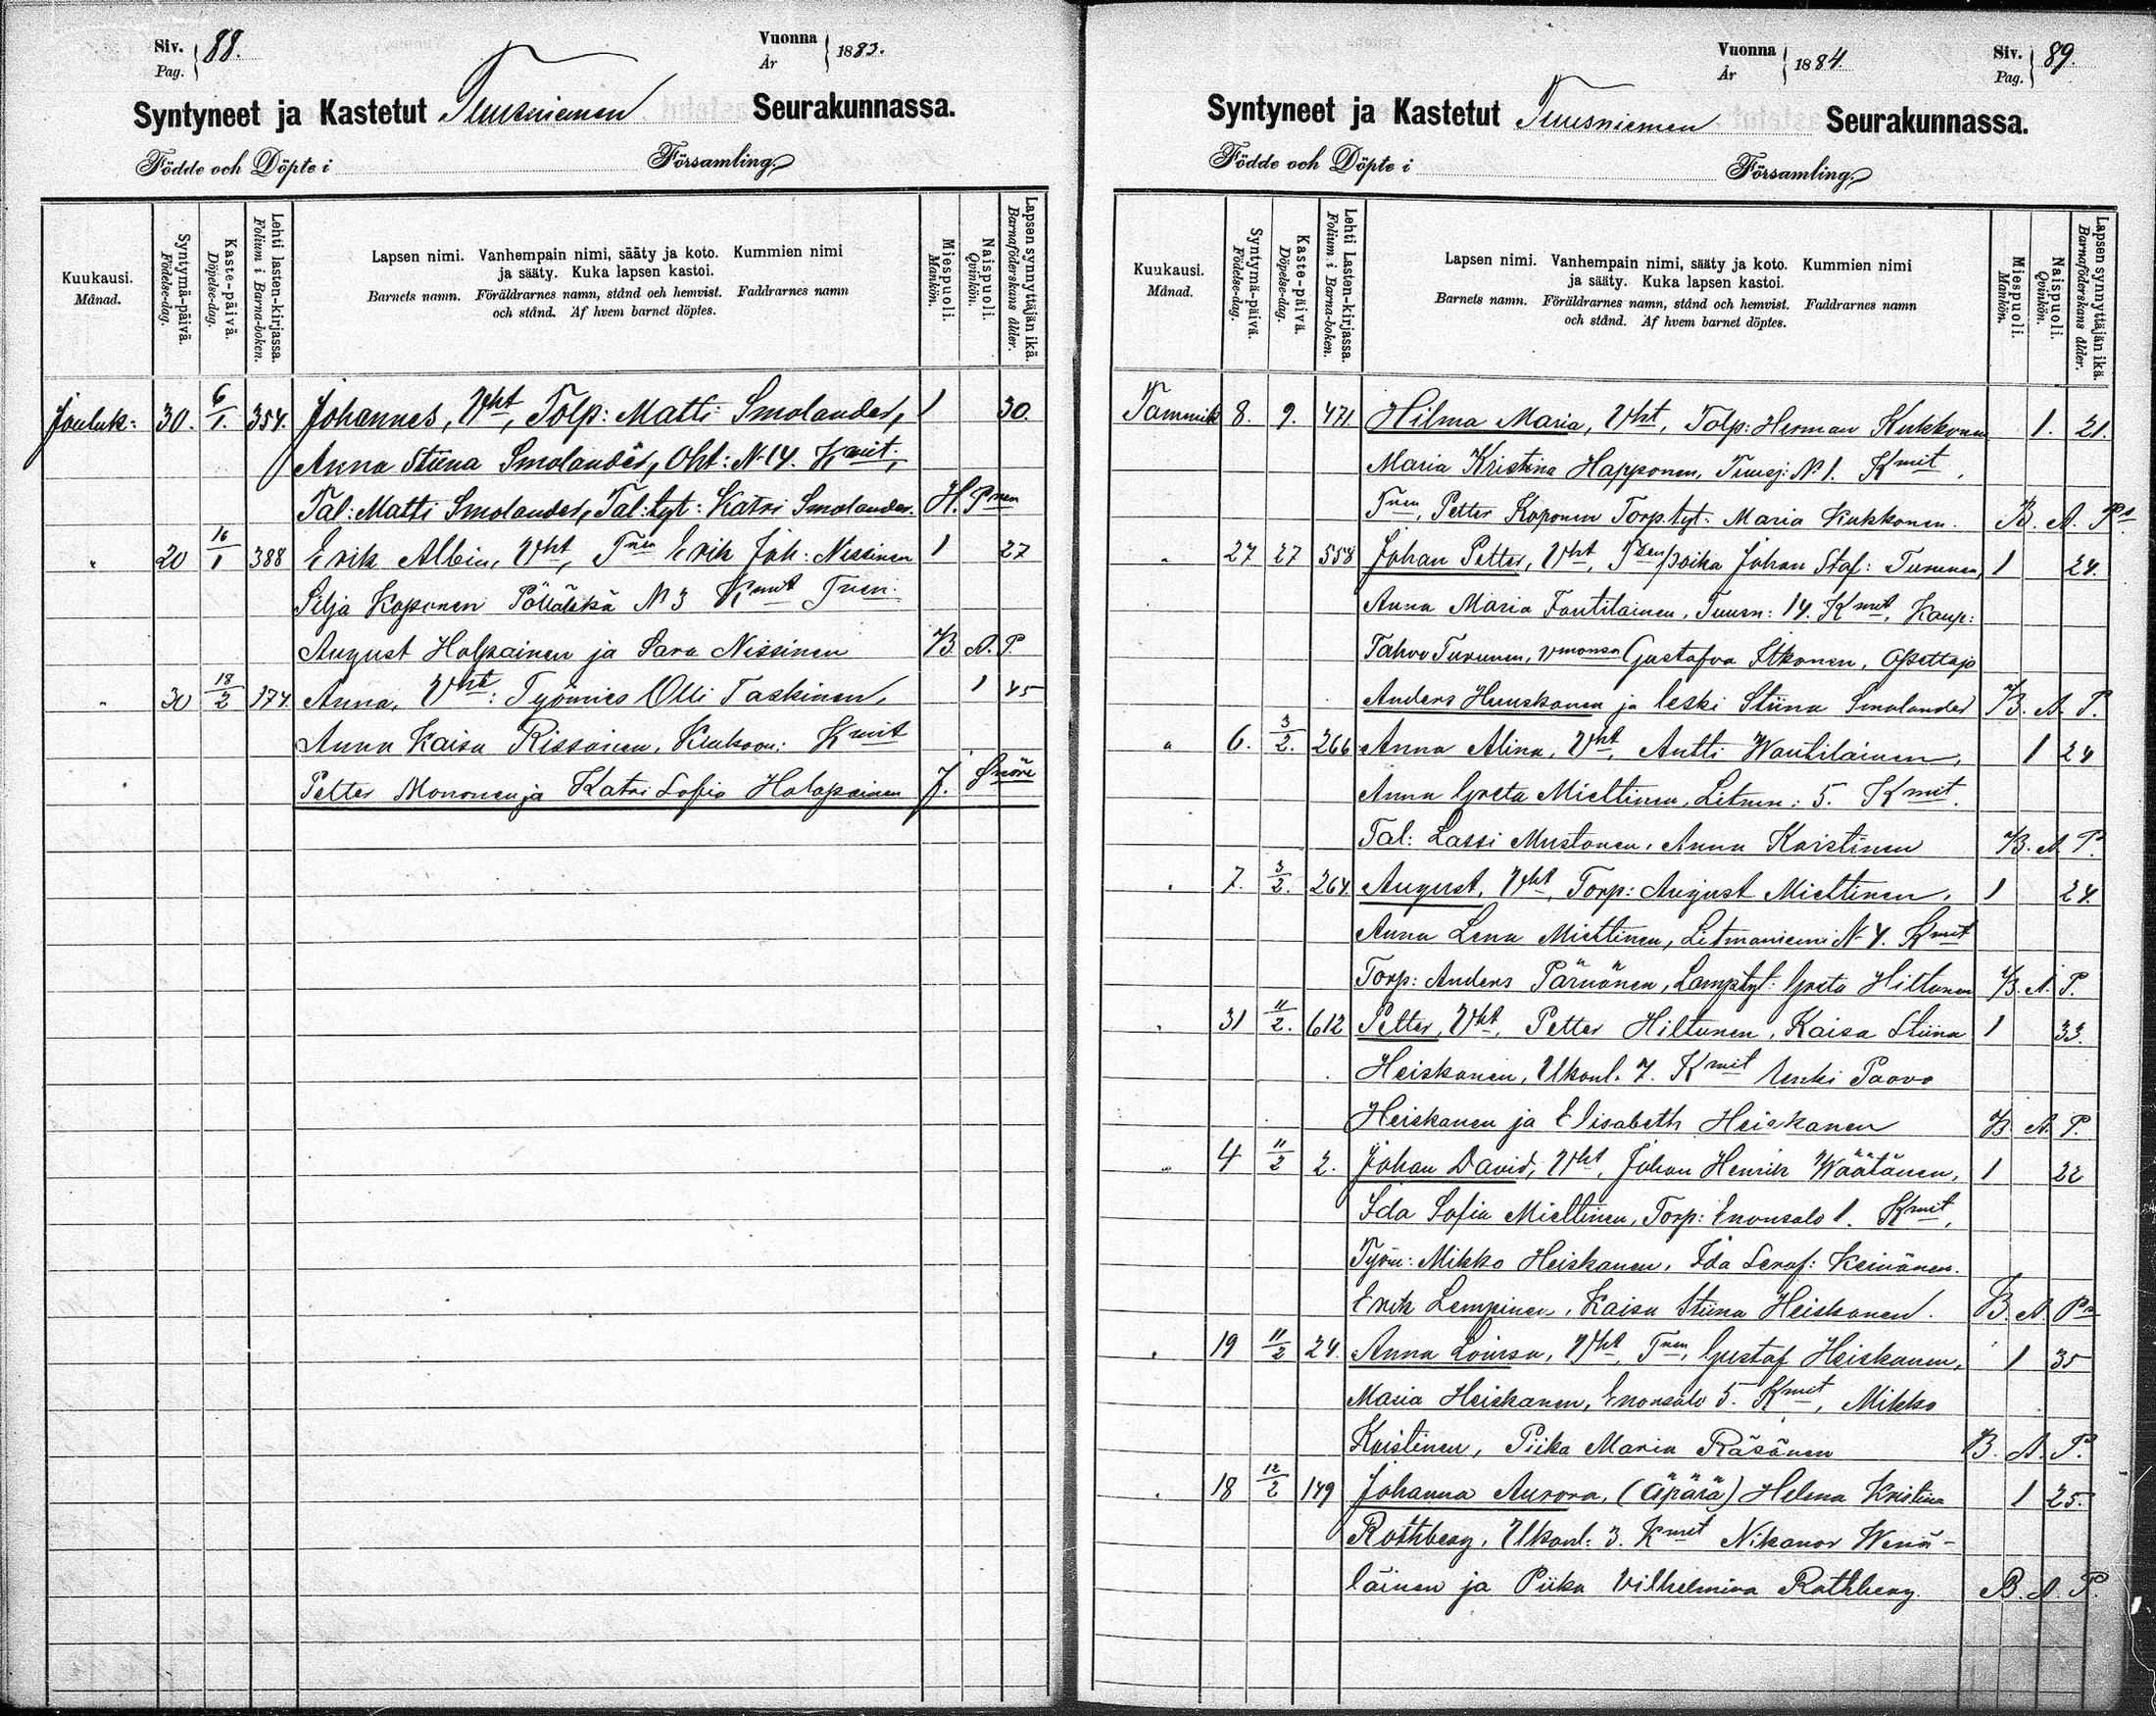 Siv. Pag. 88. Vuonna År 1883.
Syntyneet ja Kastetut Tuusniemen Seurakunnassa.
Födde och Döpte i Församling.
Kuukausi. Månad. Syntymä-päivä. Födelse-dag. Kaste-päivä. Döpelse-dag. Lehti lasten-kirjassa. Folium i Barna-boken. Lapsen nimi. Vanhempain nimi, sääty ja koto. Kummien nimi ja sääty. Kuka lapsen kastoi. Barnets namn. Föräldrarnes namn, stånd och hemvist. Faddrarnes namn och stånd. Af hvem barnet döptes. Miespuoli. Mankön. Naispuoli. Qvinkön. Lapsen synnyttäjän ikä. Barnaföderskans ålder.
Jouluk: 30. 6/1. 354. Johannes, Vht, Tolp: Matti Smolander, 1 30.
Anna Stiina Smolander, Oht: N 14. Kmit:
Tal: Matti Smolander, Tal: tyt: Katri Smolander. H. Pnen
" 20 16/1 388 Erik Albin, Vht, Tnen Erik Joh: Nissinen 1 27
Silja Koponen Pölläkkä N 3 Kmit Tnen
August Holpainen ja Sara Nissinen B A. P.
" 30 18/2 174. Anna, Vht: Työmies Olli Taskinen, 1 45
Anna Kaisa Rissanen, Kmit
Petter Mononen ja Katri Sofia Holopainen J.
Vuonna År 1884. Siv. Pag. 89.
Syntyneet ja Kastetut Tuusniemen Seurakunnassa.
Födde och Döpte i Församling.
Kuukausi. Månad. Syntymä-päivä. Födelse-dag. Kaste-päivä. Döpelse-dag. Lehti Lasten-kirjassa. Folium i Barna-boken. Lapsen nimi. Vanhempain nimi, sääty ja koto. Kummien nimi ja sääty. Kuka lapsen kastoi. Barnets namn. Föräldrarnes namn, stånd och hemvist. Faddrarnes namn och stånd. Af hvem barnet döptes. Miespuoli. Mankön. Naispuoli. Qvinkön. Lapsen synnyttäjän ikä. Barnaföderskans ålder.
Tammik 8. 9. 471. Hilma Maria, Vht, Tolp: Herman Kukkonen 1. 21.
Maria Kristina Happonen, Tuusj: N 1. Kmit,
Tnen, Petter Koponen Torp. tyt: Maria Kukkonen. B. A. Pn
" 27 27 558 Johan Petter, Vht, Tnen poika Johan Staf: Turunen, 1 24.
Anna Maria Tantilainen, Tuusn: 14. Kmit, Kaup:
Tahvo Turunen, vmonsa Gustafva Itkonen, Opettaja
Anders Huuskonen ja leski Stiina Smolander B. A. P.
" 6. 3/2. 266 Anna Alina, Vht, Antti Wautilainen, 1 24
Anna Greta Miettinen, Litmn: 5. Kmit.
Tal: Lassi Mustonen, Anna Karstinen B. A. P.
" 7. 3/2. 264. August, Vht, Torp: August Miettinen, 1 24.
Anna Lena Miettinen, Litmaniemi N 4. Kmit
Torp: Anders Pärnänen, Lamp. tyt: Greta Hiltunen B. A. P.
" 31 11/2. 612 Petter, Vht, Petter Hiltunen, Kaisa Stiina 1 33.
Heiskanen, Ukonl. 7. Kmit leski Paavo
Heiskanen ja Elisabeth Heiskanen B. A. P.
" 4 11/2 2. Johan David, Vht, Johan Henrik Wäätänen, 1 22
Ida Sofia Miettinen, Torp: Enonsalo 1. Kmit,
Työm: Mikko Heiskanen, Ida Seraf: Keinänen.
Erik Lempinen, Kaisa Stiina Heiskanen. B. A. Pn
" 19 11/2 24. Anna Lovisa, Vht, Tnen, Gustaf Heiskanen, 1 35
Maria Heiskanen, Enonsalo 5. Kmit, Mikko
Kristinen, Piika Maria Räsänen B. A. P.
" 18 12/2 149 Johanna Aurora, (äpärä) Helena Kristina 1 25.
Rothberg, Ukonl: 3. Kmit Nikanor Wenä-
läinen ja Piika Vilhelmina Rothberg. B. A. P.